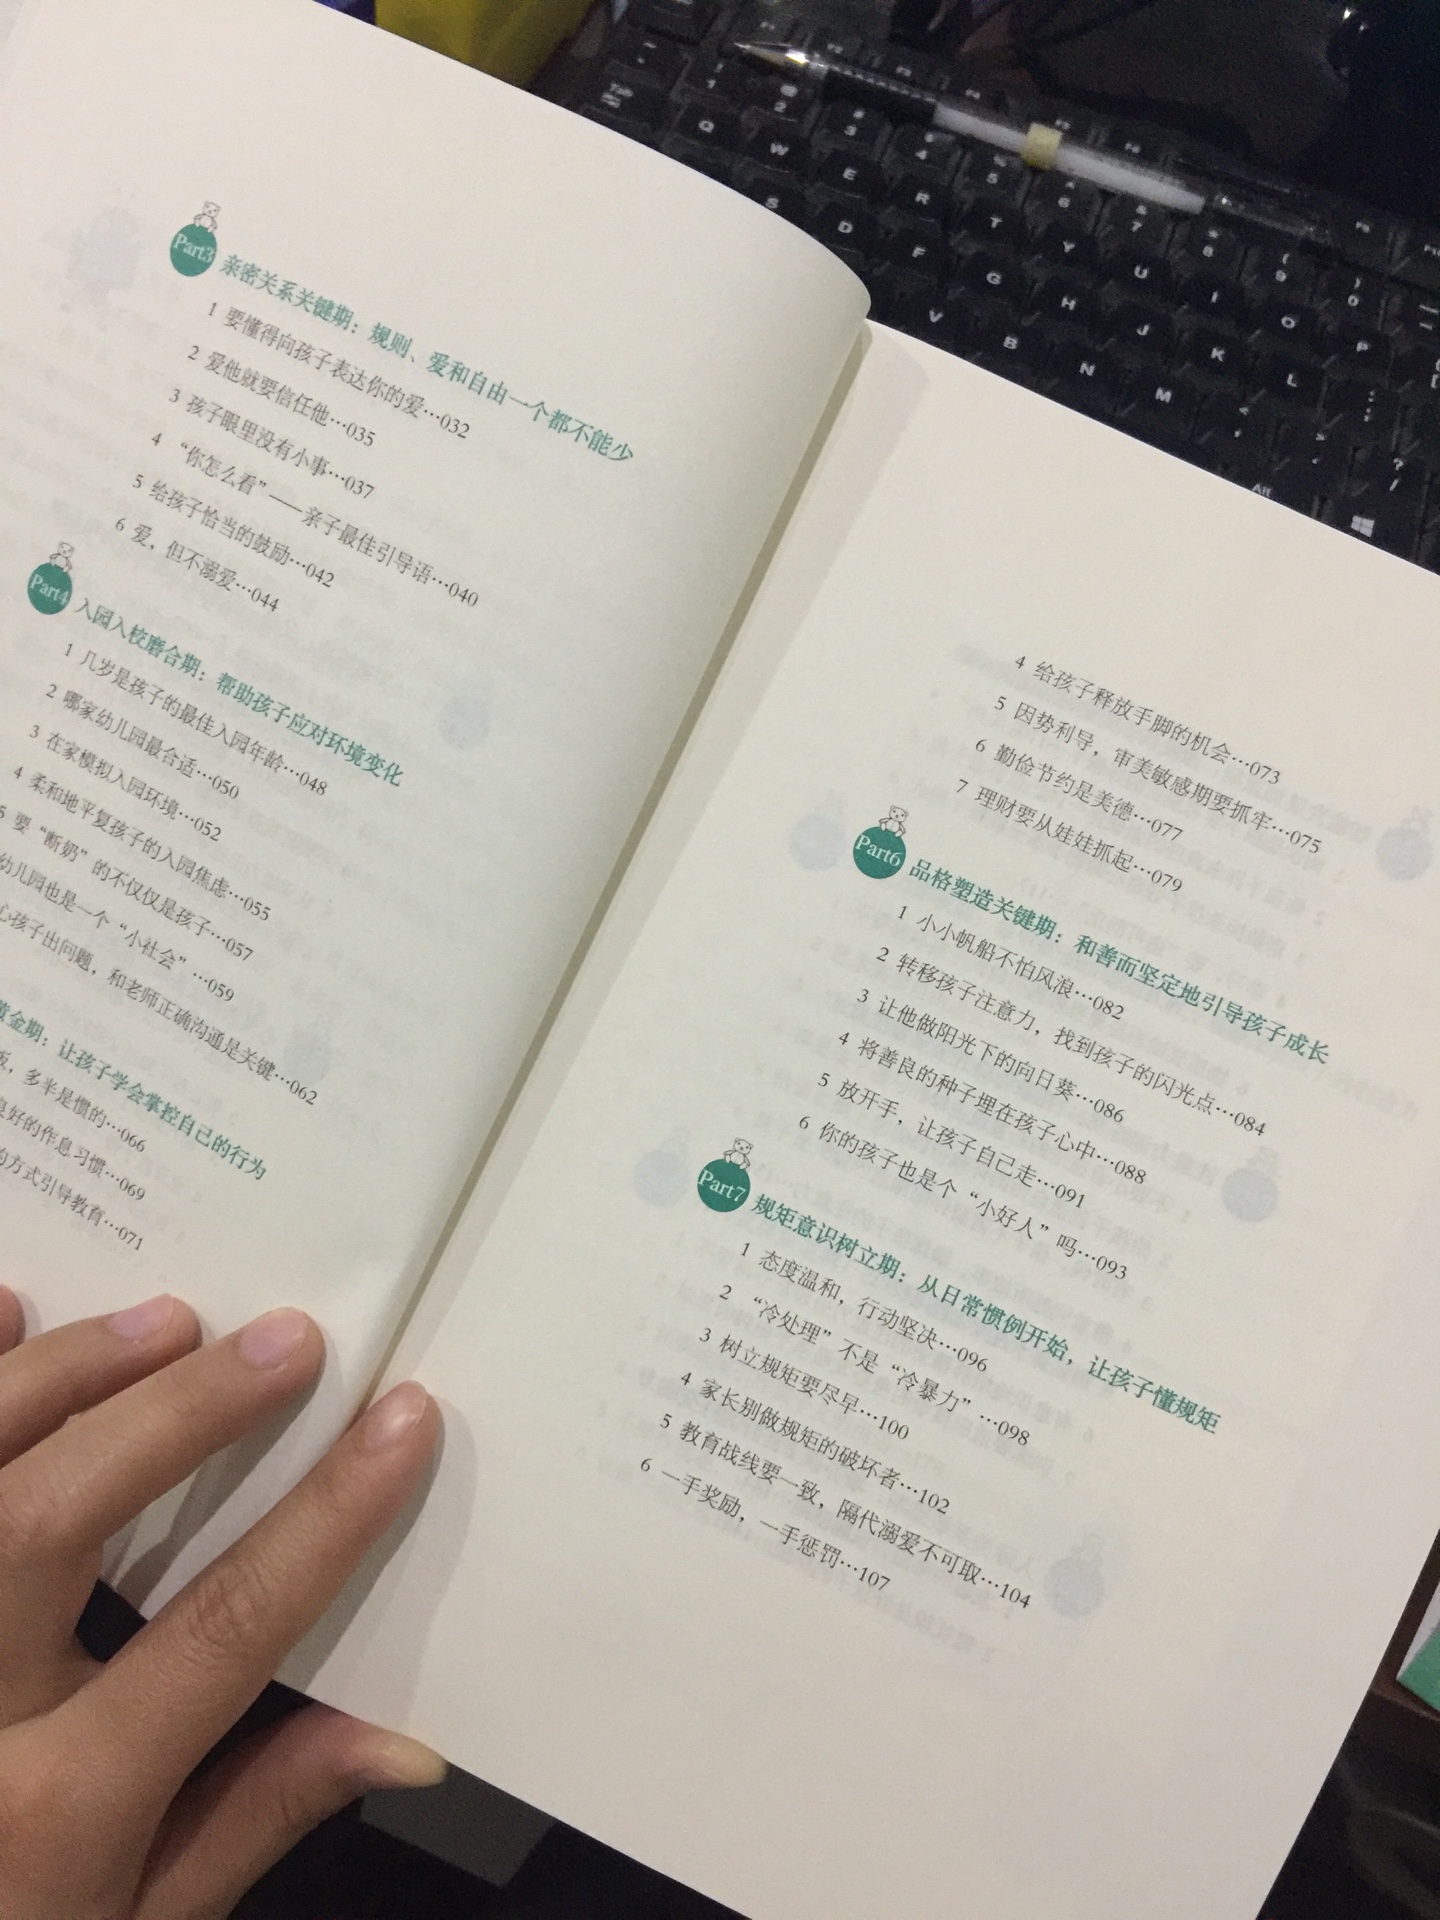 Part3 亲密关系关键期：规则、爱和自由一个都不能少
1 要懂得向孩子表达你的爱…032
2 爱他就要信任他…035
3 孩子眼里没有小事…037
4 “你怎么看”——亲子最佳引导语…040
5 给孩子恰当的鼓励…042
6 爱，但不溺爱…044
Part4 入园入校磨合期：帮助孩子应对环境变化
1 几岁是孩子的最佳入园年龄…048
2 哪家幼儿园最合适…050
3 在家模拟入园环境…052
4 柔和地平复孩子的入园焦虑…055
5 要“断奶”的不仅仅是孩子…057
幼儿园也是一个“小社会”…059
心孩子出问题，和老师正确沟通是关键…062
黄金期：让孩子学会掌控自己的行为
饭，多半是惯的…066
良好的作息习惯…069
的方式引导教育…071
4 给孩子释放手脚的机会…073
5 因势利导，审美敏感期要抓牢…075
6 勤俭节约是美德…077
7 理财要从娃娃抓起…079
Part6 品格塑造关键期：和善而坚定地引导孩子成长
1 小小帆船不怕风浪…082
2 转移孩子注意力，找到孩子的闪光点…084
3 让他做阳光下的向日葵…086
4 将善良的种子埋在孩子心中…088
5 放开手，让孩子自己走…091
6 你的孩子也是个“小好人”吗…093
Part7 规矩意识树立期：从日常惯例开始，让孩子懂规矩
1 态度温和，行动坚决…096
2 “冷处理”不是“冷暴力”…098
3 树立规矩要尽早…100
4 家长别做规矩的破坏者…102
5 教育战线要一致，隔代溺爱不可取…104
6 一手奖励，一手惩罚…107